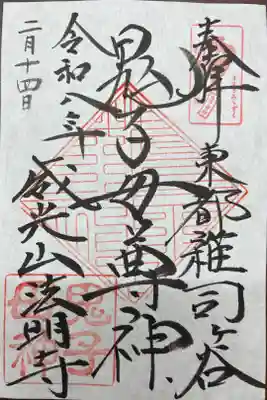 奉拝
東都雑司ヶ谷
鬼子母尊神
威光山法明寺
令和八年
二月十四日